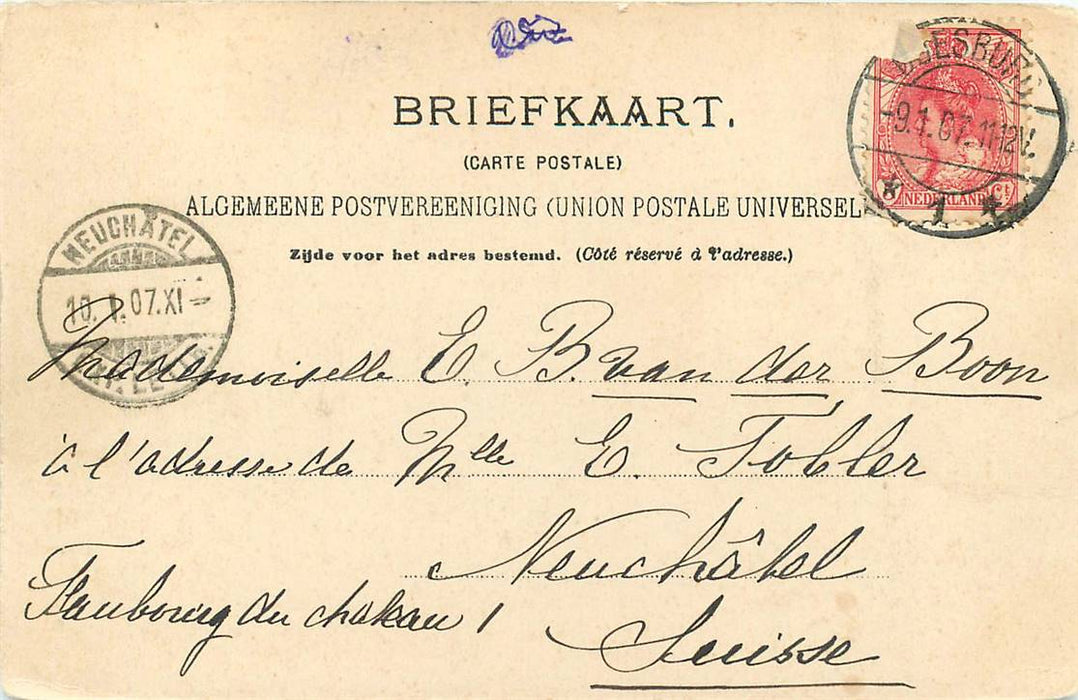 BRIEFKAART.
(CARTE POSTALE)
ALGEMEENE POSTVEREENIGING (UNION POSTALE UNIVERSEL
Zijde voor het adres bestemd. (Côté réservé à l'adresse.)
-9.1.07.11-12V.
NEDERLAND
NEUCHÂTEL
10.1.07.XI
Mademoiselle E. B. van der Boon
à l'adresse de Mlle E. Tobler
Neuchâtel
Faubourg du chateau 1
Suisse